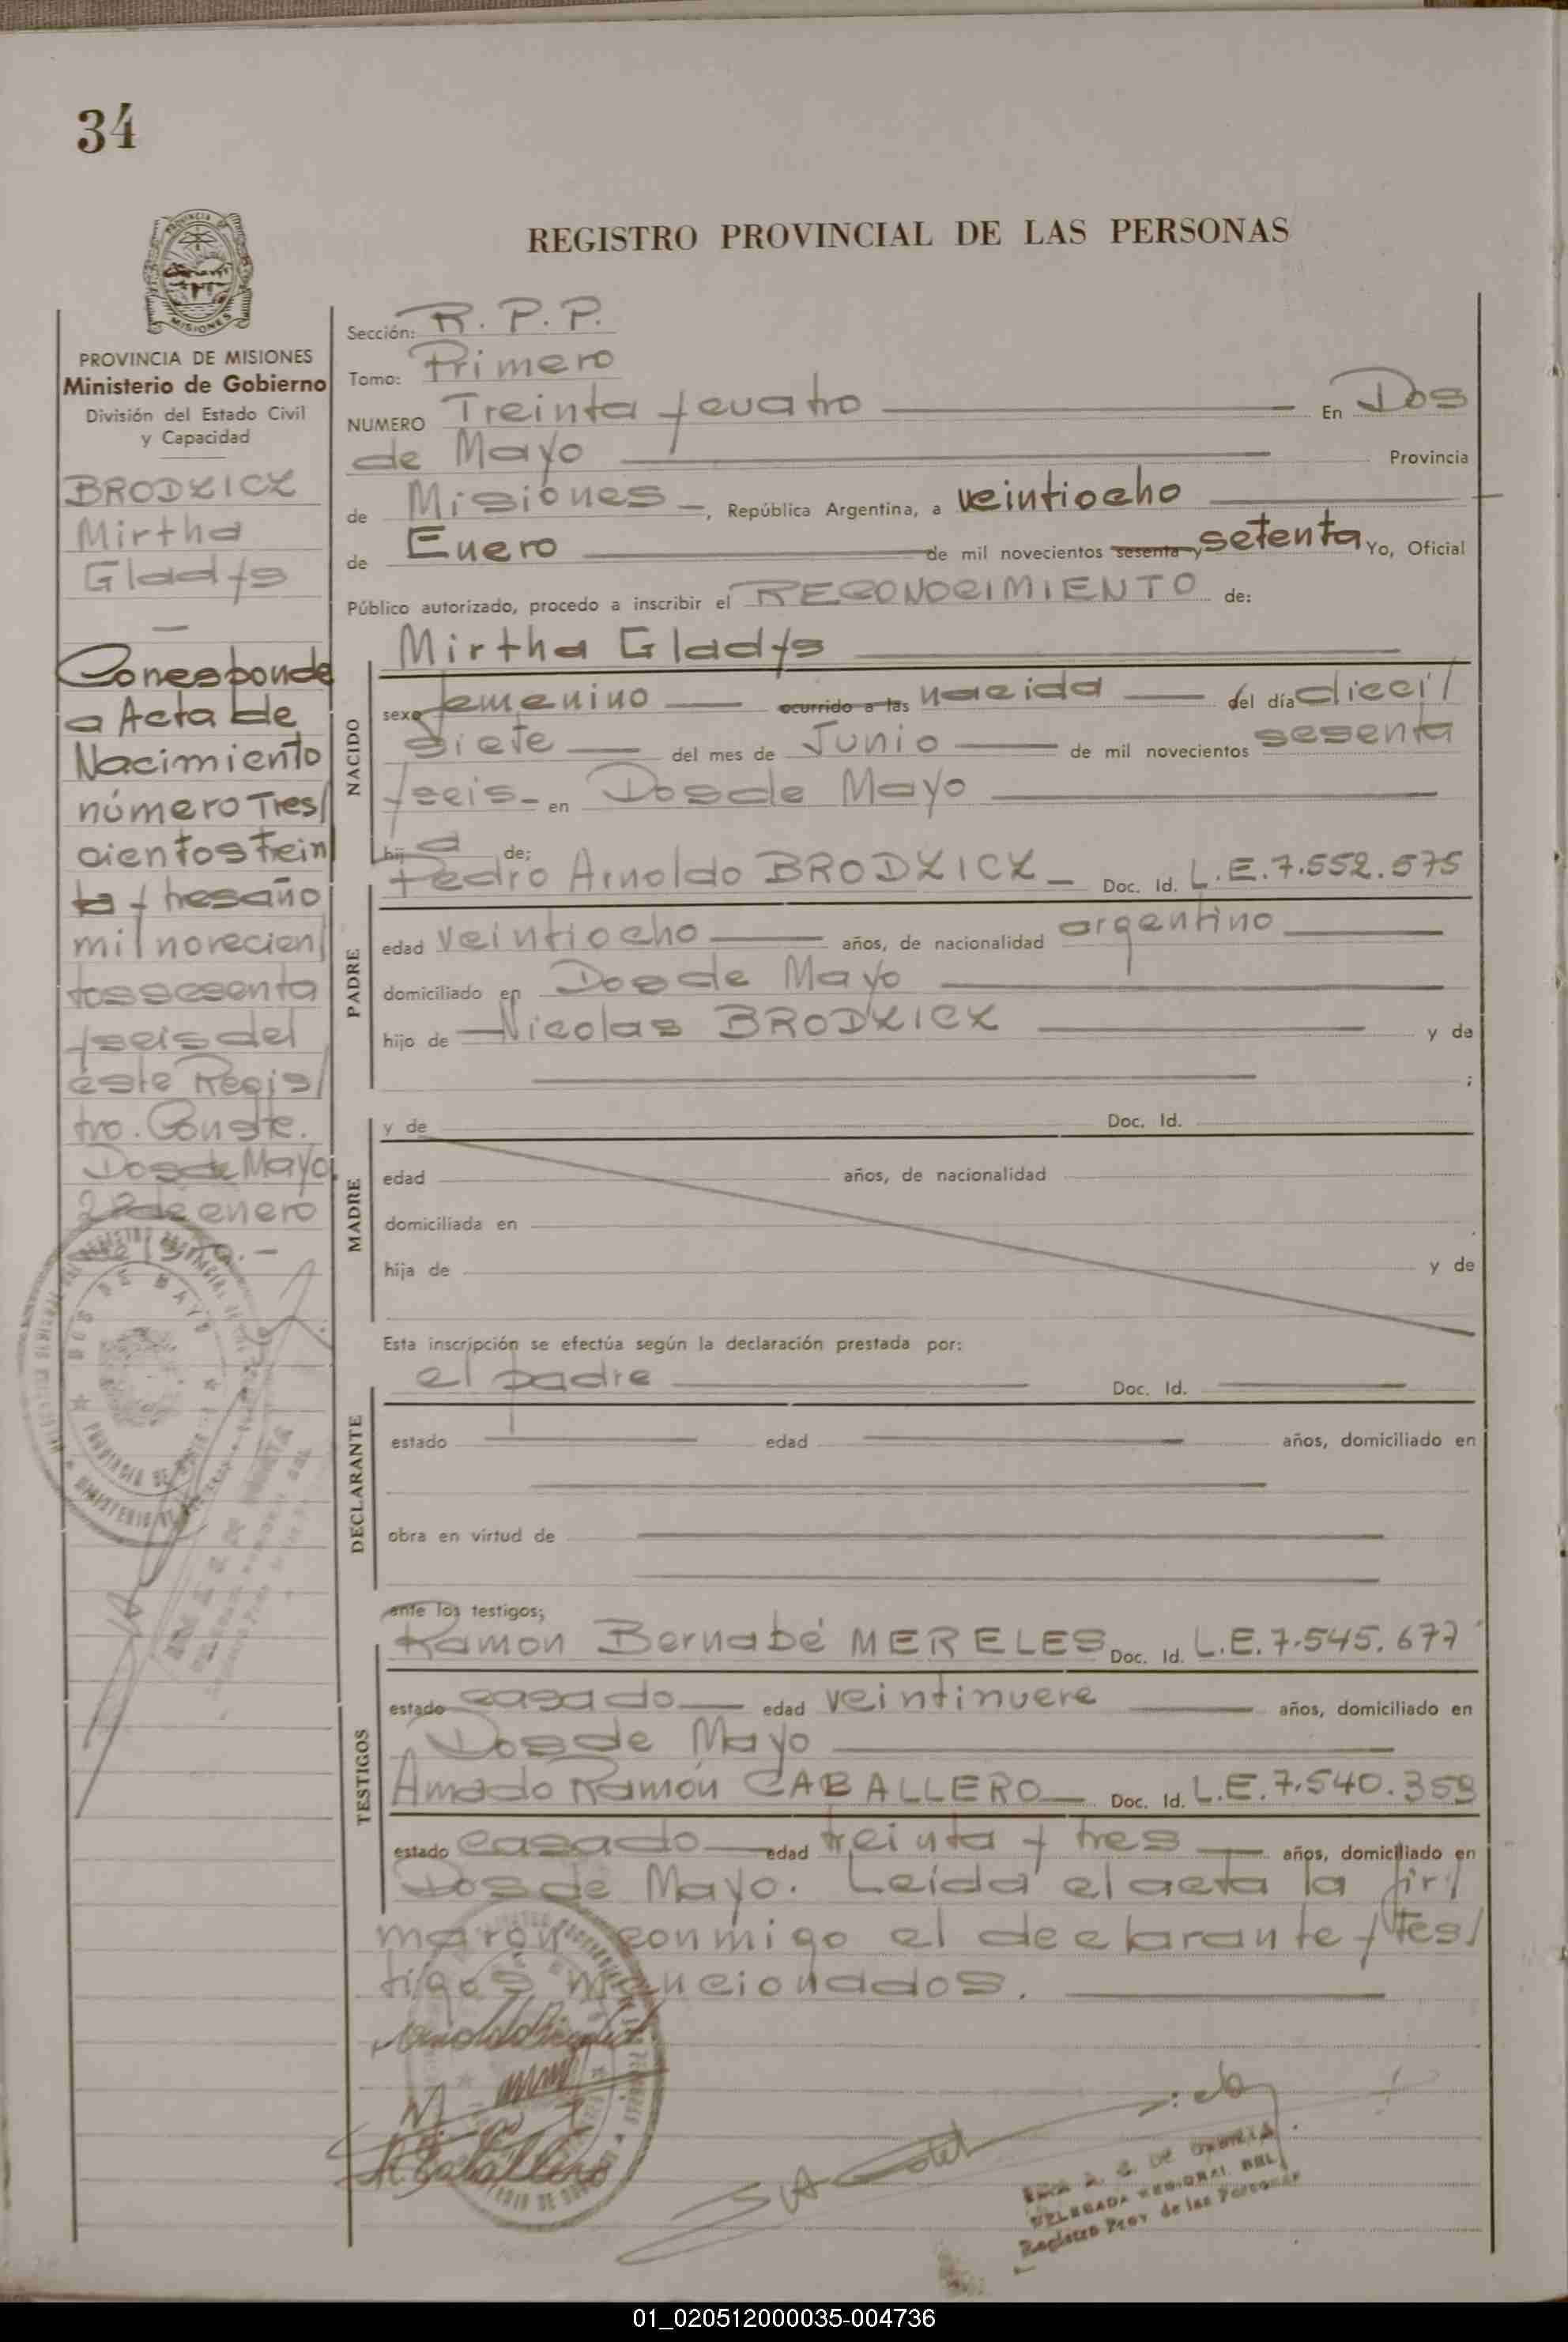 34
REGISTRO PROVINCIAL DE LAS PERSONAS
PROVINCIA DE MISIONES
Ministerio de Gobierno
División del Estado Civil
y Capacidad
BRODZICZ
Mirtha
Gladys
—
Corresponde
a Acta de
Nacimiento
número Tres/
cientos trein
ta y tres año
mil novecien/
tos sesenta
y seis del
éste Regis/
tro. Conste.
Dos de Mayo,
28 de enero
de 1970.-
Sección: R. P. P.
Tomo: Primero
NUMERO Treinta y cuatro En Dos
de Mayo Provincia
de Misiones -, República Argentina, a veintiocho
de Enero de mil novecientos sesenta y setenta Yo, Oficial
Público autorizado, procedo a inscribir el RECONOCIMIENTO de:
Mirtha Gladys
NACIDO
sexo femenino ocurrido a las nacida del día dieci/
siete del mes de Junio de mil novecientos sesenta
y seis- en Dos de Mayo
hij a de:
Pedro Arnoldo BRODZICZ - Doc. Id. L.E.7.552.575
PADRE
edad veintiocho años, de nacionalidad argentino
domiciliado en Dos de Mayo
hijo de Nicolas BRODZICZ y de
;
MADRE
y de Doc. Id.
edad años, de nacionalidad
domiciliada en
hija de y de
Esta inscripción se efectúa según la declaración prestada por:
el padre Doc. Id.
DECLARANTE
estado edad años, domiciliado en
obra en virtud de
ante los testigos;
Ramon Bernabé MERELES Doc. Id. L.E.7.545.677
TESTIGOS
estado casado edad veintinueve años, domiciliado en
Dos de Mayo
Amado Ramón CABALLERO Doc. Id. L.E.7.540.359
estado casado edad treinta y tres años, domiciliado en
Dos de Mayo. Leída el acta la fir/
maron conmigo el declarante y tes/
tigos mencionados.
DELEGADA REGIONAL DEL
Registro Prov. de las Personas
01_020512000035-004736